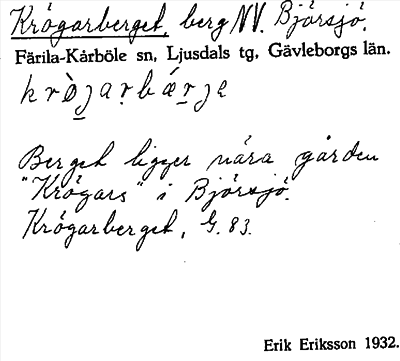 Krögarberget, berg NV. Björsjö.
Färila-Kårböle sn, Ljusdals tg, Gävleborgs län.
Berget ligger nära gården
"Krögars" i Björsjö.
Krögarberget, G. 83.
Erik Eriksson 1932.